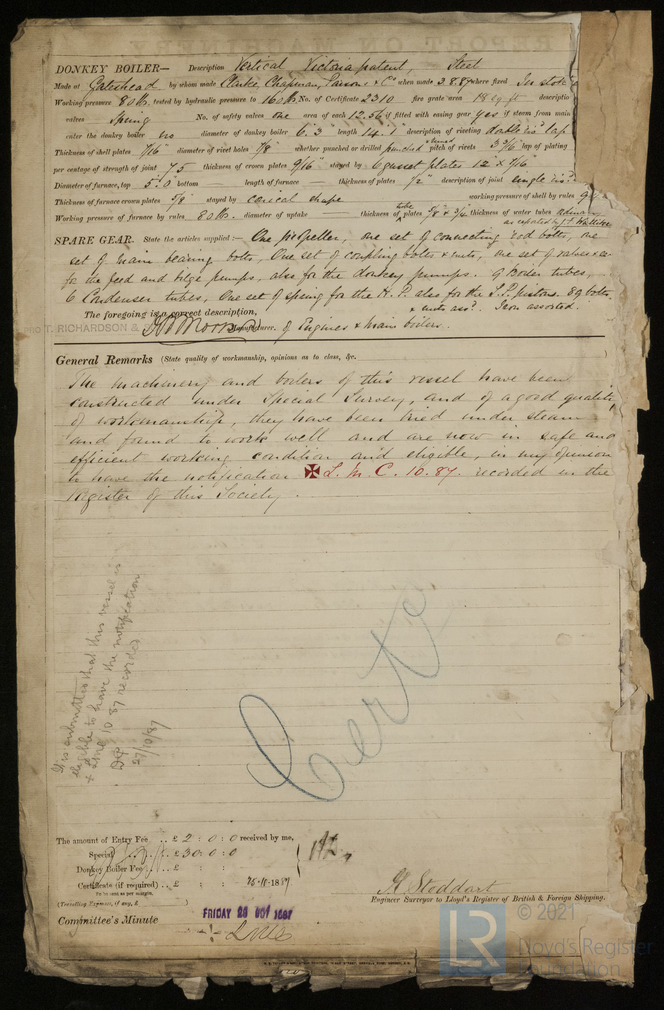 DONKEY BOILER— Description Vertical Victoria patent, Steel
Made at Gateshead by whom made Clarke, Chapman, Parsons & Co when made 3.8.87 where fixed In stok
Working pressure 80 lb. tested by hydraulic pressure to 160 lb. No. of Certificate 2310 fire grate area 18 sq. ft descriptio
valves Spring No. of safety valves one area of each 12.56 if fitted with easing gear yes if steam from main
enter the donkey boiler no diameter of donkey boiler 6.3 length 14.1 description of riveting double riv lap
Thickness of shell plates 7/16 diameter of rivet holes 7/8 whether punched or drilled punched pitch of rivets lap of plating
per centage of strength of joint 75 thickness of crown plates 9/16 stayed by 6 gusset plates 12 x 7/16
Diameter of furnace, top 5.0 bottom — length of furnace — thickness of plates 1/2" description of joint single riv
Thickness of furnace crown plates 5/8 stayed by conical shape working pressure of shell by rules
Working pressure of furnace by rules 80 lb. diameter of uptake thickness of tube plates thickness of water tubes
SPARE GEAR. State the articles supplied:— One propeller, one set of connecting rod bolts, one
set of main bearing bolts, One set of coupling bolts & nuts, one set of valves &c
for the feed and bilge pumps, also for the donkey pumps. 9 Boiler tubes,
6 Condenser tubes, One set of springs for the H.P. also for the L.P. pistons. 89 bolts
& nuts assd. Iron assorted.
The foregoing is a correct description,
T. RICHARDSON & Manufacturer. of Engines & Main boilers.
General Remarks (State quality of workmanship, opinions as to class, &c.
The machinery and boilers of this vessel have been
constructed under Special Survey, and of a good quality
of workmanship, they have been tried under steam
and found to work well and are now in safe and
efficient working condition and eligible, in my opinion
to have the notification ✠ L.M.C. 10.87. recorded in the
Register of this Society.
It is submitted that this vessel is
eligible to have the notification
+ LMC 10 87 recorded
27/10/87
Cert
The amount of Entry Fee .. £ 2 : 0 : 0 received by me,
Special .. £ 30 : 0 : 0
Donkey Boiler Fee .. £ : :
Certificate (if required) .. £ : : 1887
(Travelling Expenses, if any, £ )
Committee's Minute
FRIDAY 28 OCT 1887
+ LMC
H. Stoddart
Engineer Surveyor to Lloyd's Register of British & Foreign Shipping.
LR © 2021
Lloyd's Register
Foundation